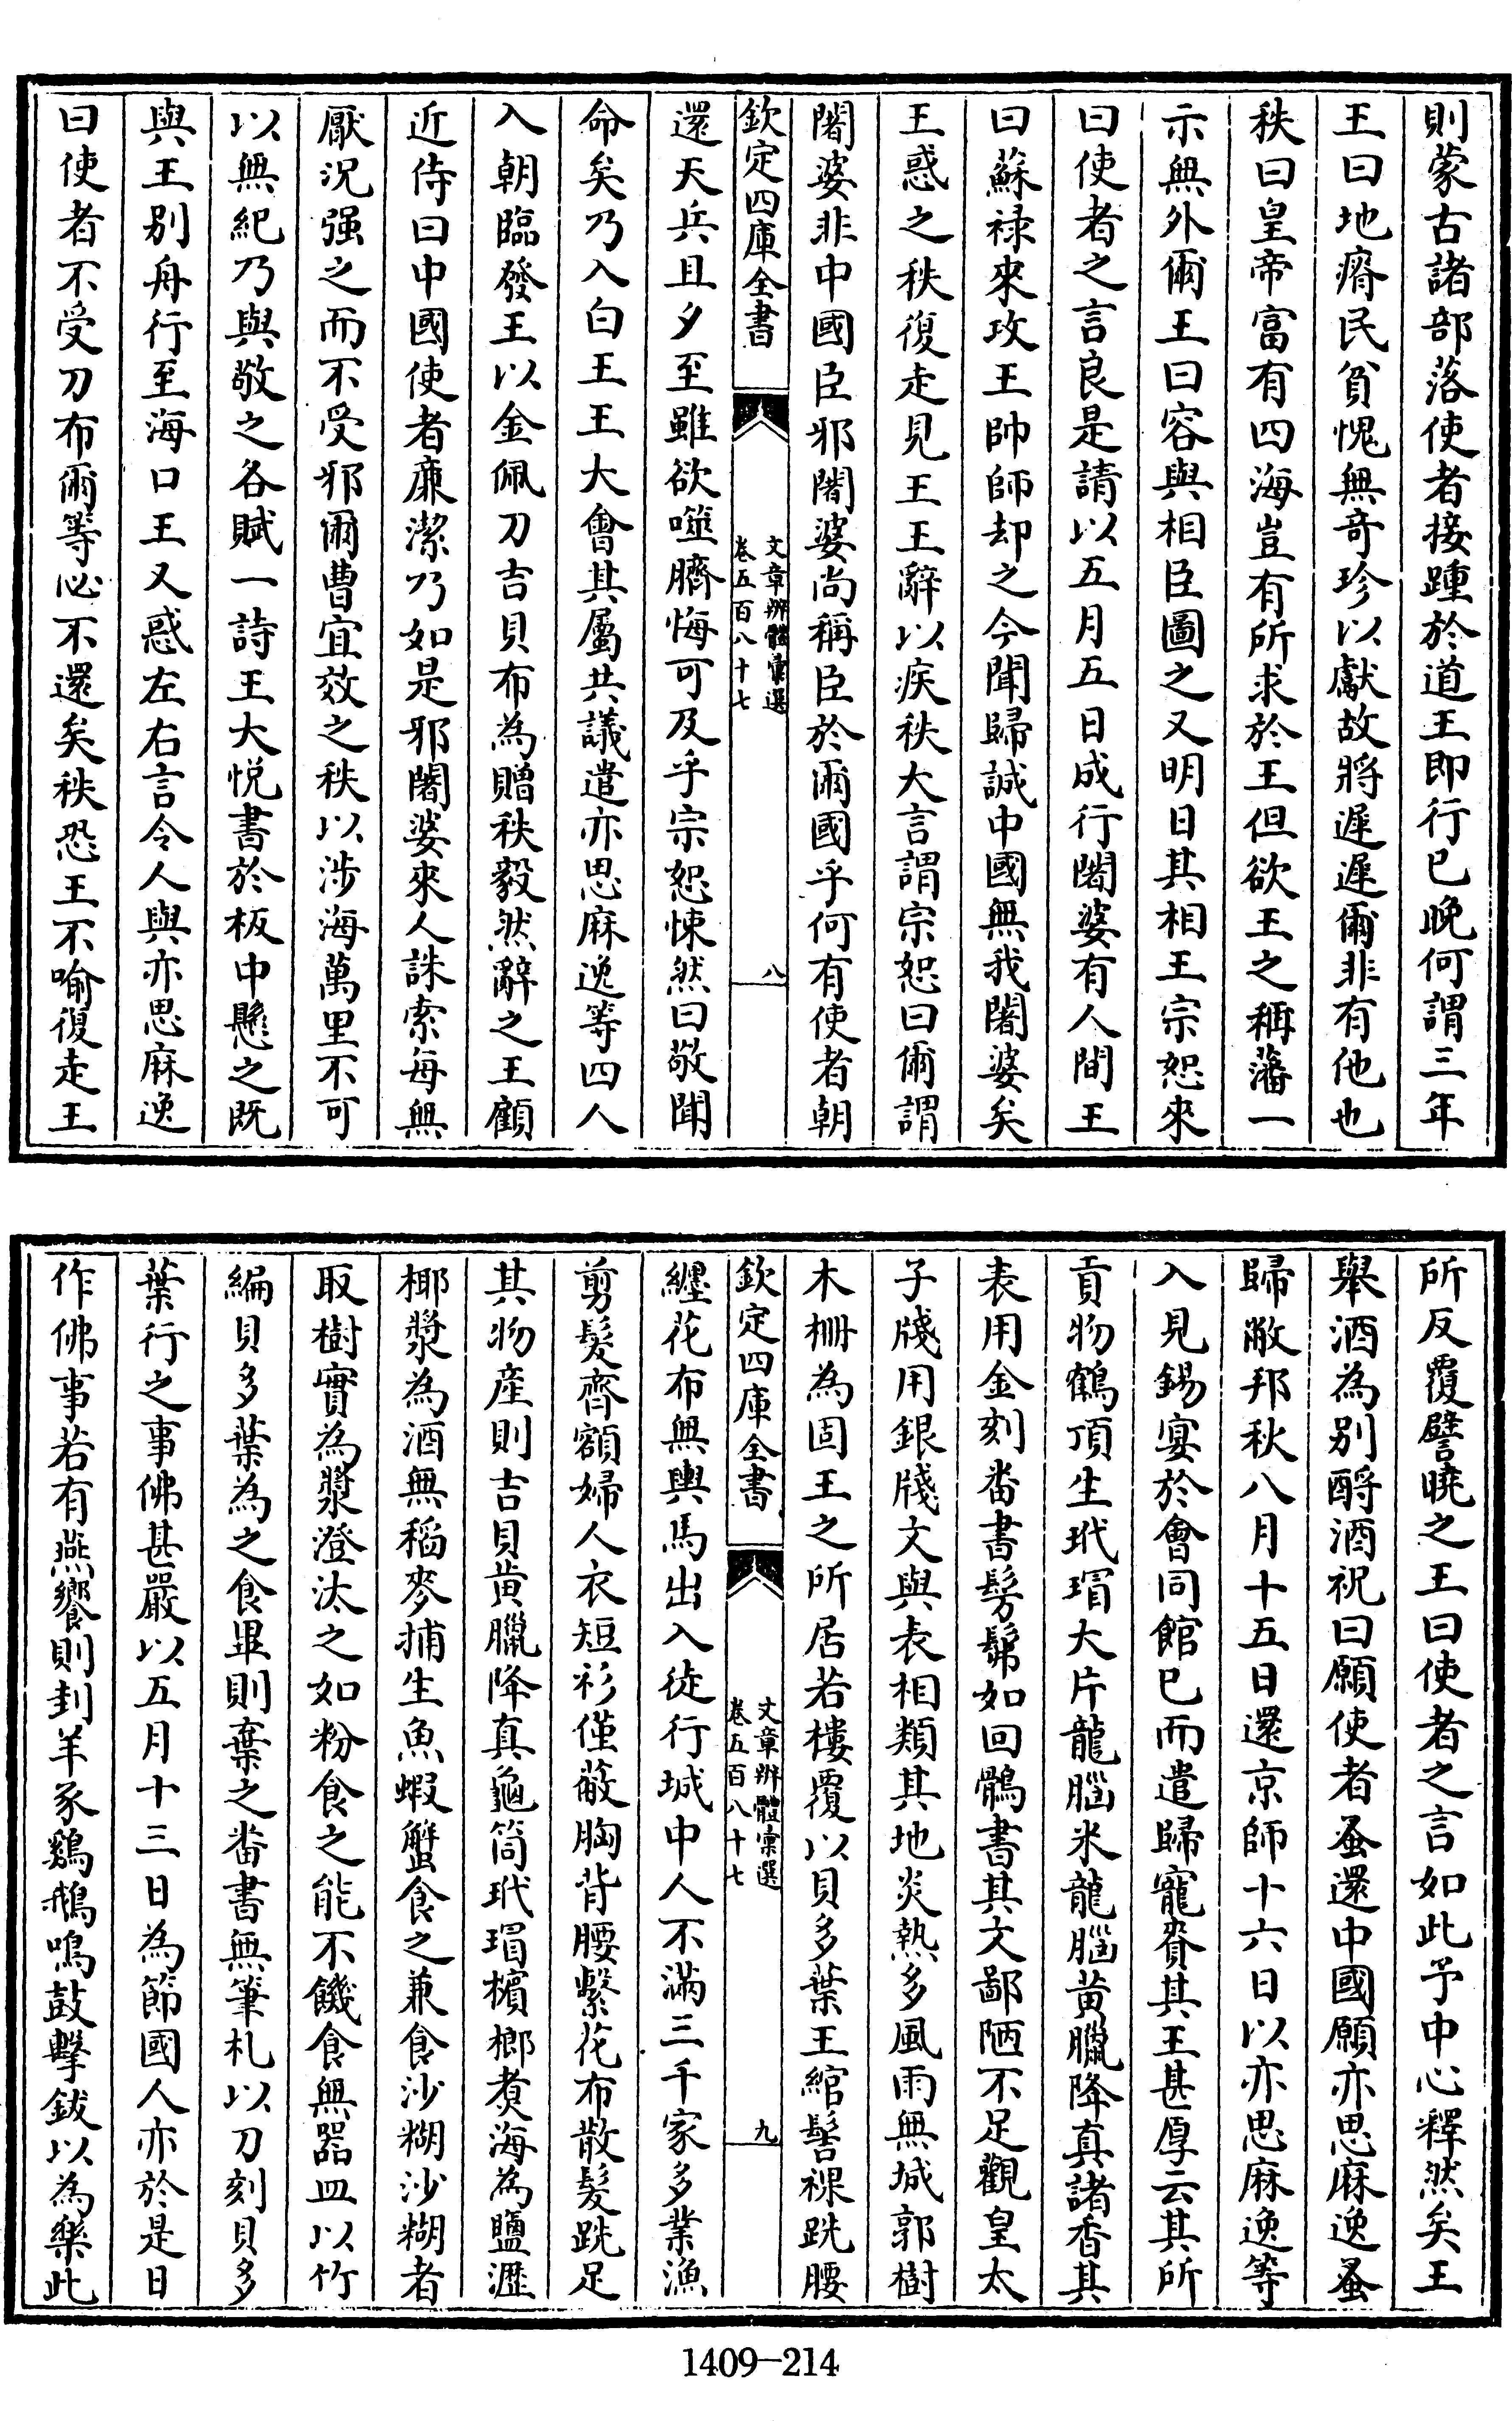 則蒙古諸部落使者接踵於道王即行已晚何謂三年
王曰地瘠民貧愧無奇珍以獻故將遲遲爾非有他也
秩曰皇帝富有四海豈有所求於王但欲王之稱藩一
示無外爾王曰容與相臣圖之又明日其相王宗恕來
曰使者之言良是請以五月五日成行闍婆有人間王
曰蘇禄來攻王帥師却之今聞歸誠中國無我闍婆矣
王惑之秩復走見王王辭以疾秩大言謂宗恕曰爾謂
闍婆非中國臣邪闍婆尚稱臣於爾國乎何有使者朝
欽定四庫全書
文章辨體彙選
卷五百八十七
八
還天兵旦夕至雖欲噬臍悔可及乎宗恕悚然曰敬聞
命矣乃入白王王大會其屬共議遣亦思麻逸等四人
入朝臨發王以金佩刀吉貝布為贈秩毅然辭之王顧
近侍曰中國使者廉潔乃如是邪闍婆來人誅索每無
厭況强之而不受邪爾曹宜效之秩以涉海萬里不可
以無紀乃與敬之各賦一詩王大悦書於板中懸之既
與王别舟行至海口王又惑左右言令人與亦思麻逸
曰使者不受刀布爾等必不還矣秩恐王不喻復走王
所反覆譬曉之王曰使者之言如此予中心釋然矣王
舉酒為别酹酒祝曰願使者蚤還中國願亦思麻逸蚤
歸敝邦秋八月十五日還京師十六日以亦思麻逸等
入見錫宴於會同館已而遣歸寵賚其王甚厚云其所
貢物鶴頂生玳瑁大片龍腦米龍腦黄臘降真諸香其
表用金刻畨書髣髴如回鶻書其文鄙陋不足觀皇太
子牋用銀牋文與表相類其地炎熱多風雨無城郭樹
木栅為固王之所居若樓覆以貝多葉王綰髻裸跣腰
欽定四庫全書
文章辨體彙選
卷五百八十七
九
纏花布無輿馬出入徒行城中人不滿三千家多業漁
剪髮齊額婦人衣短衫僅蔽胸背腰繫花布散髮跣足
其物產則吉貝黄臘降真龜筒玳瑁檳榔煮海為鹽瀝
椰漿為酒無稻麥捕生魚蝦蟹食之兼食沙糊沙糊者
取樹實為漿澄汰之如粉食之能不饑食無器皿以竹
編貝多葉為之食畢則棄之畨書無筆札以刀刻貝多
葉行之事佛甚嚴以五月十三日為節國人亦於是日
作佛事若有燕饗則刲羊豕鷄鵝鳴鼓擊鈸以為樂此
1409—214